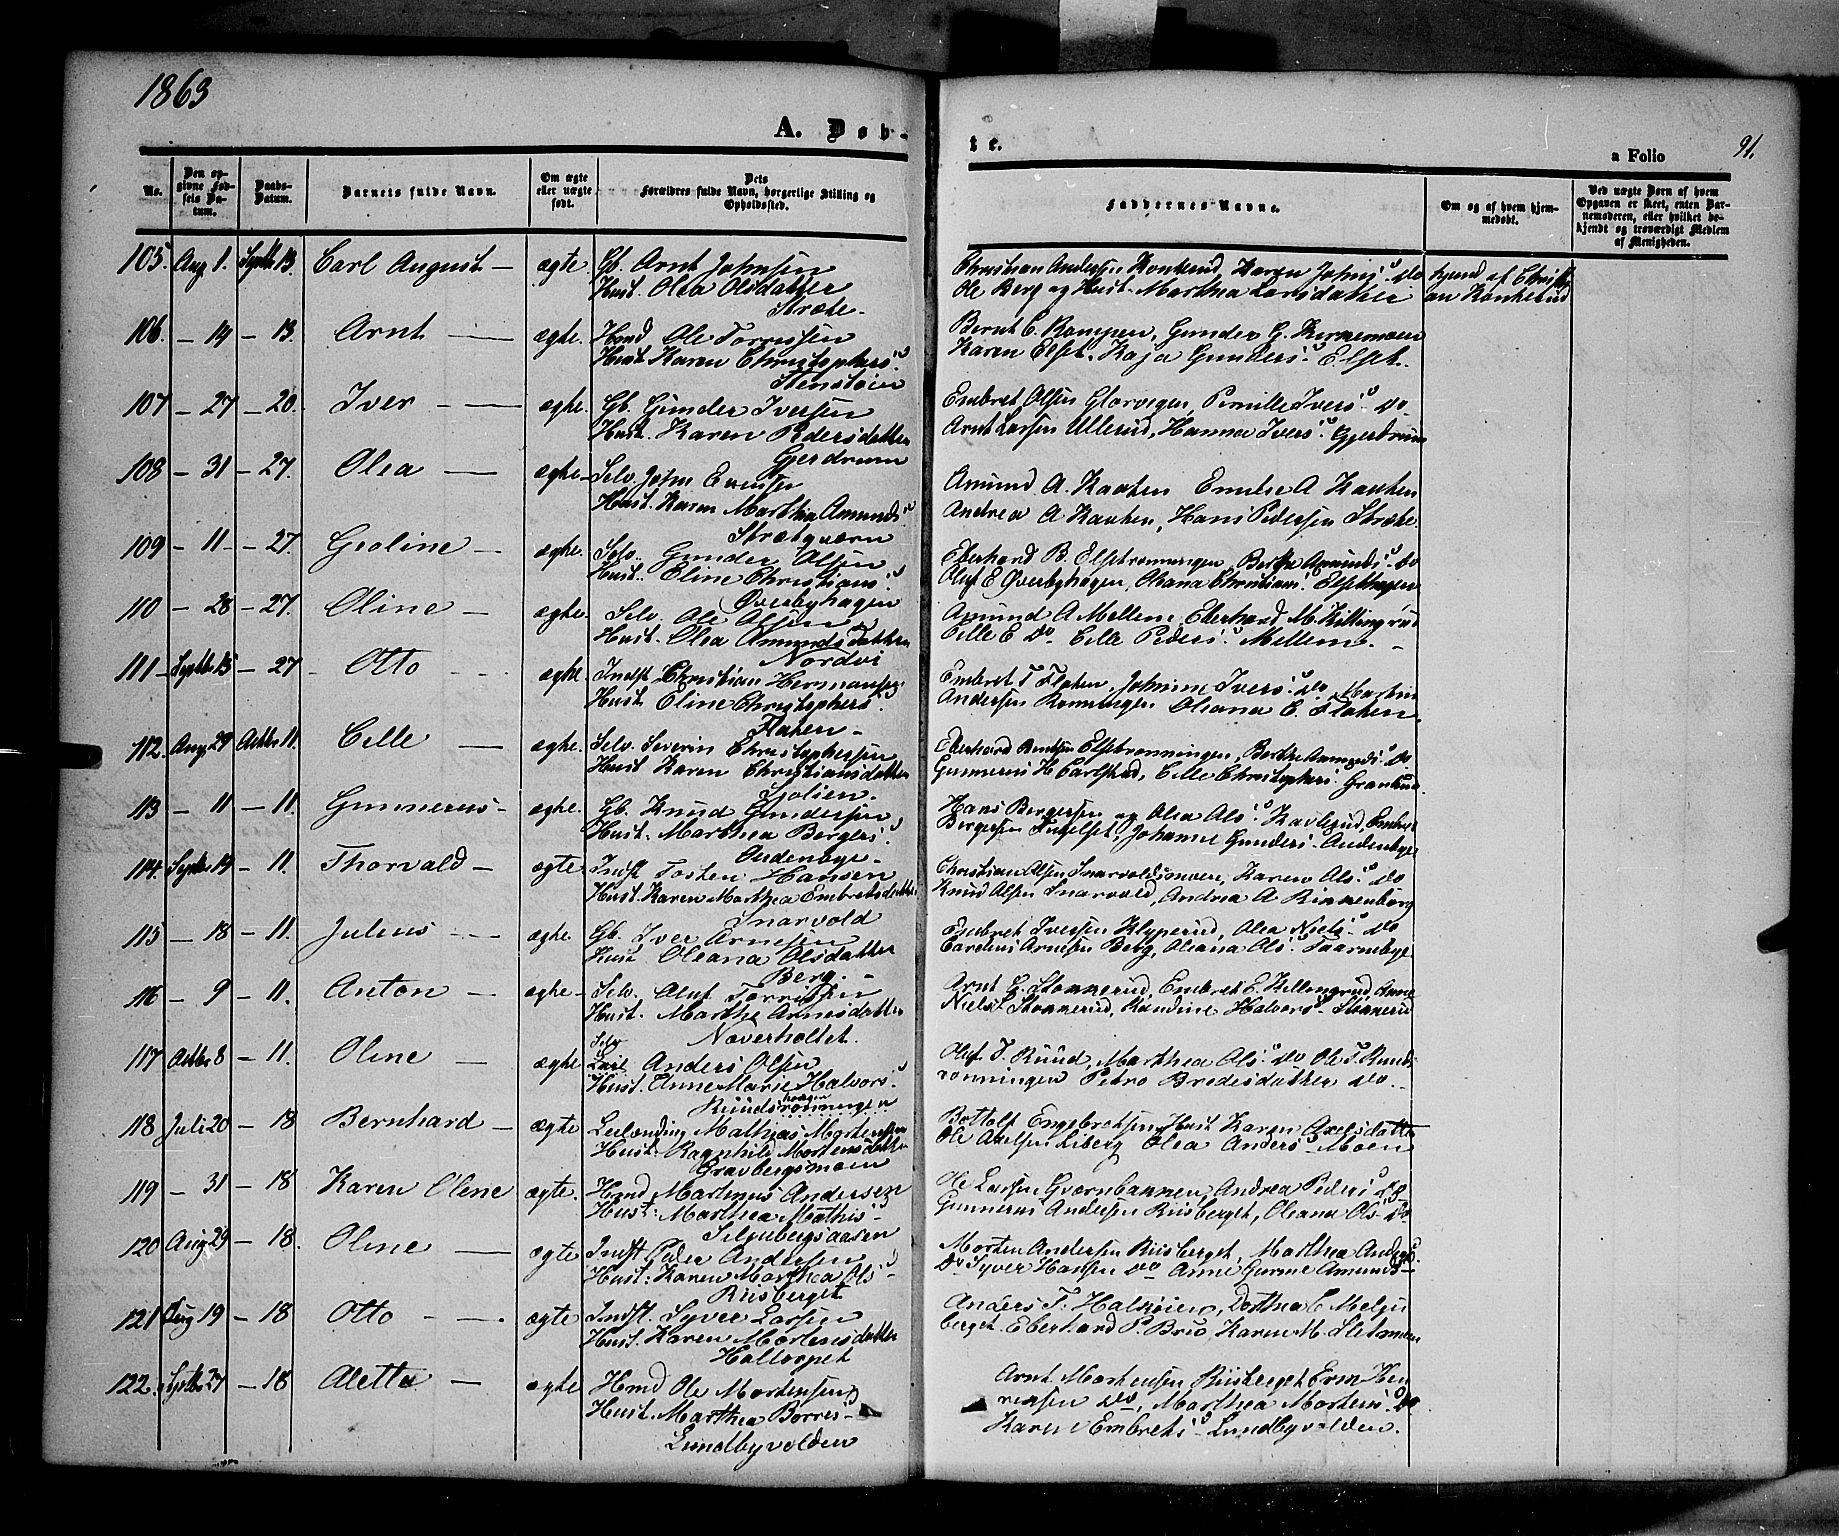 1863
A. Døb-
te.
a Folio 91.
No.
Den op-
givne Fød-
sels Da-
tum.
Daabs-
Datum.
Barnets fulde Navn.
Om ægte
eller uægte
født.
Dets
Forældres fulde Navn, borgerlige Stilling og
Opholdssted.
Faddernes Navne.
Om og af hvem hjem-
medøbt.
Ved uægte Børn af hvem
Opgaven er skeet, enten Bar-
nemoderen, eller hvilket be-
kjendt og troværdigt Medlem
af Menigheden.
105. Aug 1. Septbr 13. Carl August — ægte Gb. Arnt Johnsen
Hust. Olea Olsdatter
Stræte.
Christian Andersen Konterud, Karen Johns. Do
Ole Berg og Hust. Marthea Larsdatter
hjemd af Christi-
an Konterud
106. — 14 — 13. Arnt — ægte. Hmd Ole Torressen
Hust. Karen Christophers.
Stensloien
Bernt C. Rompen, Gunder G. Kirkemoen
Karen Elset, Kaja Gunders. Elset.
107 — 27 — 20. Iver — ægte. Gb. Gunder Iversen
Hust. Karen Pedersdatter
Gjerdrum
Embret Olsen Glorvigen, Pernille Ivers. Do
Arnt Larsen Ullerud, Hanna Ivers. Gjerdrum
108 — 31 — 27. Olea — ægte Selv. John Evensen
Hust. Karen Marthia Amunds.
Strætqværn
Amund A. Kaaten Emelse A Kaaten
Andrea A Kaaten, Hans Pedersen Stræte
109 — 11 — 27. Groline — ægte. Selv. Gunder Olsen
Hust. Eline Christians.
Øverbyhagen
Eberhard B. Elsetrønningen, Berthe Amunds. Do
Oluf E Øverbyhagen, Oleana Christians. Elsethagen
110 — 28 — 27. Oline — ægte. Selv. Ole Olsen
Hust. Olea Amundsdatter
Nordvi
Amund A Mellem, Eberhard M. Killingrud
Eille E Do Eille Peders. Mellem.
111 — Septbr 15 — 27 Otto ægte. Indst Christian Hermansen
Hust. Eline Christophers.
Flaten —
Embret T Flaten, Johanne Ivers. Do Martin
Andersen Rønningen Oleana E. Flaten
112. Aug 29 Octbr 11. Eille — ægte. Selv. Severin Christophersen
Hust Karen Christiansdatter
Sjolien.
Eberhard Berntsen Elsetrønningen, Berthe Amunds. Do
Gunnerus H Carlstad, Eille Christophers. Granerud
113 — 11 — 11. Gunnerus — ægte. Gb. Knud Gundersen
Hust. Marthea Bergers.
Audenbye
Hans Bergersen og Olea Ols. Kavlerud, Embret
Bergersen Fuglset, Johanne Gunders. Audenbye
114. Septbr 14 — 11. Thorvald — ægte Indst Tosten Hansen
Hust. Karen Marthea Embretsdatter
Snarvold
Christian Olsen Snarvoldsmoen, Karen Ols. Do
Knud Olsen Snarvold, Andrea A Kinnenborg
115 — 18 — 11. Julius ægte. Gb. Iver Arnesen
Hust. Oleana Olsdatter
Berg.
Embret Iversen Klyperud, Olea Niels. Do
Carelius Arnesen Berg, Oleana Ols. Taarnebye
116 — 9 — 11. Anton — ægte Selv. Oluf Torrissen
Hust. Marthe Arnesdatter
Næverholtet.
Arnt G. Stommerud, Embret E. Killengrud, Anne
Niels. Stommerud, Randine Halvors. Stommerud
117 Octbr 8 — 11. Oline — ægte Selv
Anders Olsen
Hust. Anne Marie Halvors.
Ruudsrønningen
Oluf T. Ruud, Marthea Ols. Do Ole T. Ruuds-
rønningen Petro Bredesdatter Do.
118 Juli 20 — 18 Bernhard — ægte Leilænding Mathias Mortensen
Hust. Ragnhild Mortensdatter
Gravbergsmoen
Bottolf Engebretsen, Hust Karen Axelsdatter
Ole Axelsen Liberg Olea Anders. Moen
119 — 31 — 18 Karen Olene ægte. Hmd Martinus Andersen
Hust: Marthea Mathis-
Seljubergsaasen
Ole Larsen Qværnbannen, Andrea Peders. Do
Gunnerus Andersen Riisberget, Oleana Ols. Do
120 Aug 29 — 18. Oline — ægte Indst Peder Andersen
Hust: Karen Marthea Ols-
Riisberget
Morten Andersen Riisberget, Marthea Anders.
Do Syver Hansen Do Anne Gurine Amunds-
121 Aug 19 — 18 Otto — ægte Indst. Syver Larsen
Hust. Karen Mortensdatter
Haltorpet
Anders T. Halsioien, Dorthea C Meljn
berget. Eberhard P. Bruo, Karen M. Sletmoen
122. Septbr 27 — 18 Aletta — ægte Hmd Ole Mortensen
Hust. Marthea Borres-
Lundbyvolden
Arnt Mortensen Riisberget Even Hen
reksen Do, Marthea Mortens. Do
Karen Embrets. Lundbyvolden.